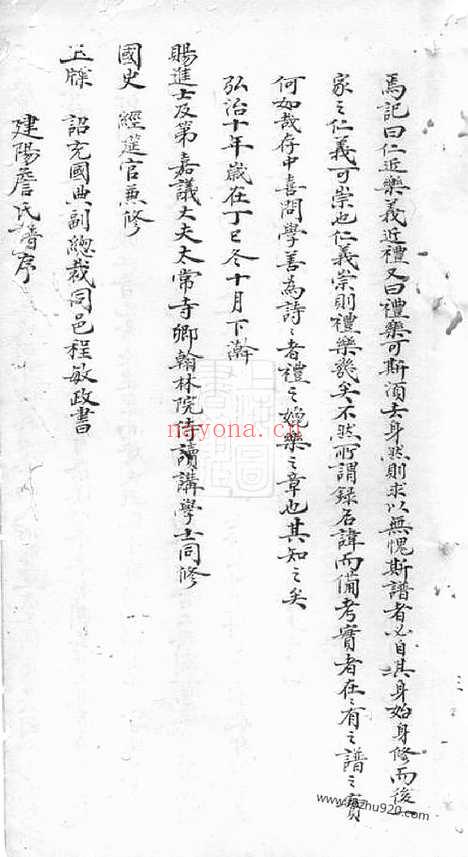 焉記曰仁近樂義近禮又曰禮樂可斯須去身然則求以無愧斯譜者必自其身始身修而後一
家之仁義可崇也仁義崇則禮樂幾矣不然所謂錄名諱而備考實者在在有之譜之實
何如哉存中喜問學善為詩詩者禮之樂之章也其知之矣
弘治十年歲在丁巳冬十月下澣
賜進士及第嘉議大夫太常寺卿翰林院侍讀講學士同修
國史 經筵官兼修
玉牒 詔充國典副總裁同邑程敏政書
建陽詹氏譜序
nayona.cn
www.kuzhu920.com